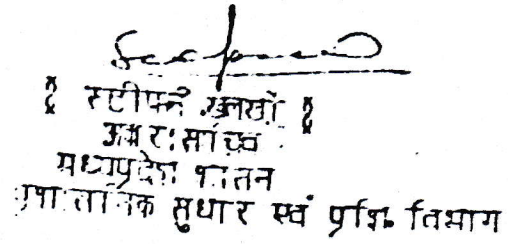 स्टीफन खलखो
अवर सचिव
मध्यप्रदेश शासन
प्रशासनिक सुधार एवं प्रशि. विभाग